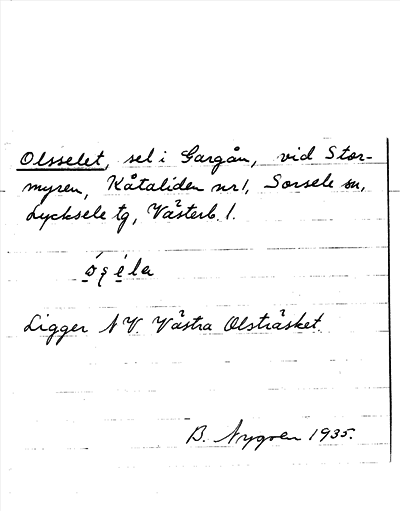 Olsselet, sel i Gargån, vid Stor-
myren, Kåtaliden nr 1, Sorsele sn,
Lycksele tg, Västerb. l.
Ligger NV Västra Olsträsket.
B. Nygren 1935.